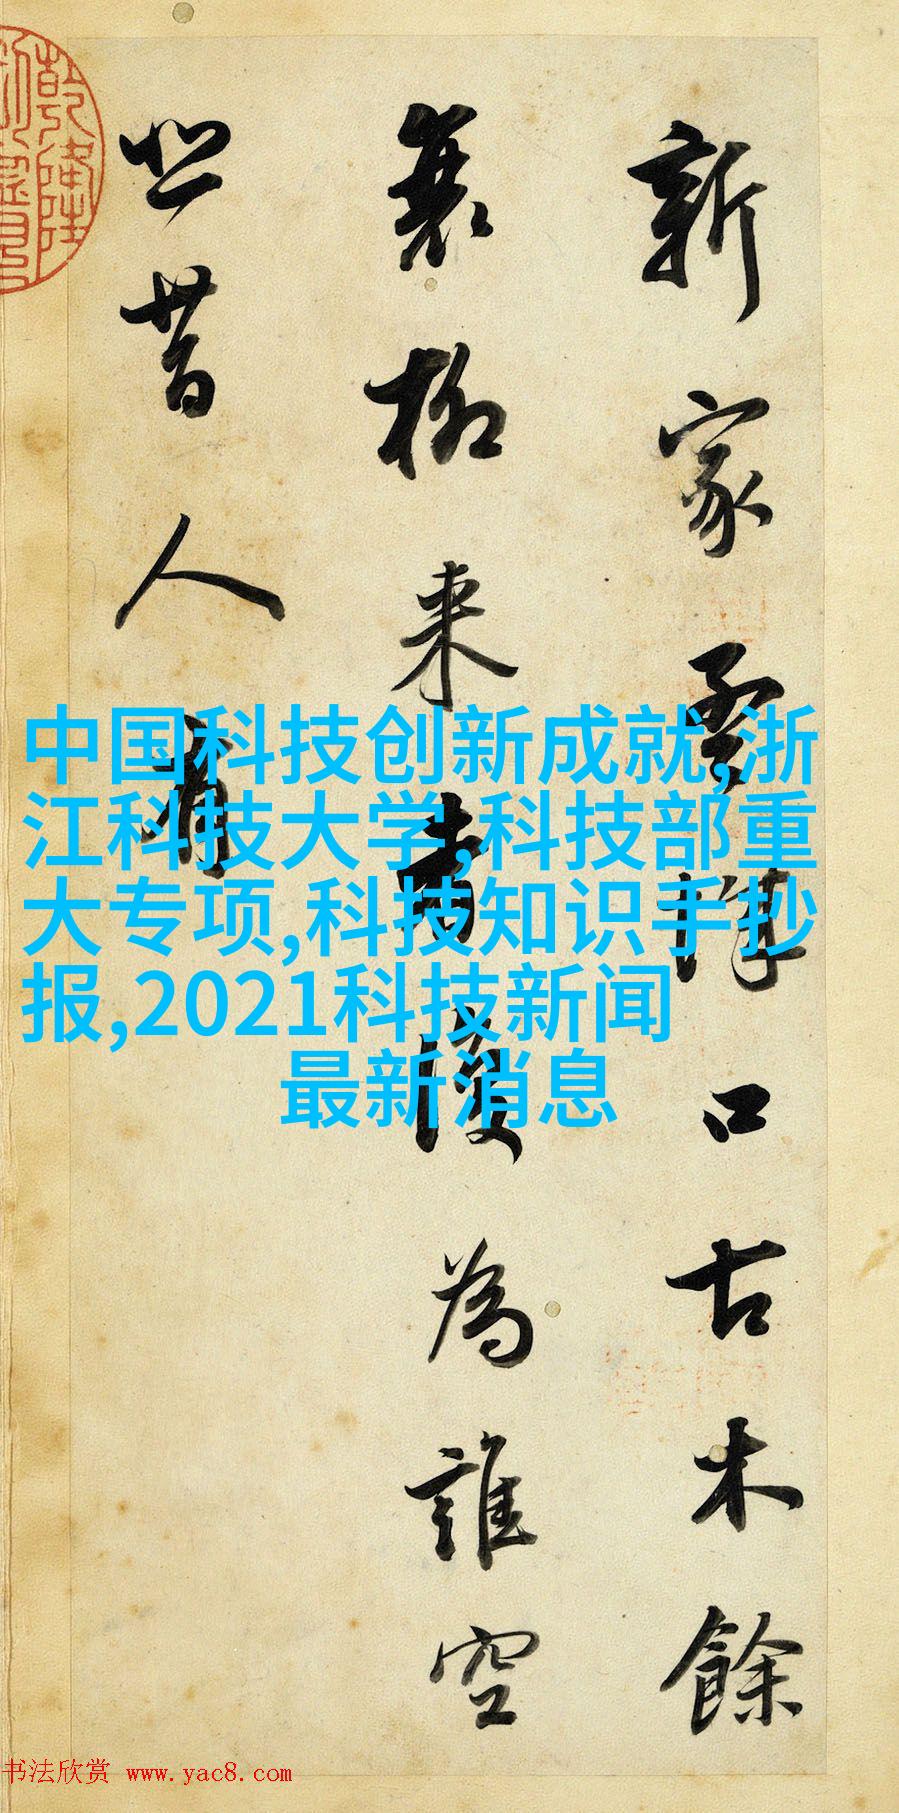 新家孟城口古木餘
衰柳来者復為誰空
悲昔人有
中国科技创新成就,浙
江科技大学,科技部重
大专项,科技知识手抄
报,2021科技新闻
最新消息
书法欣赏 www.yac8.com